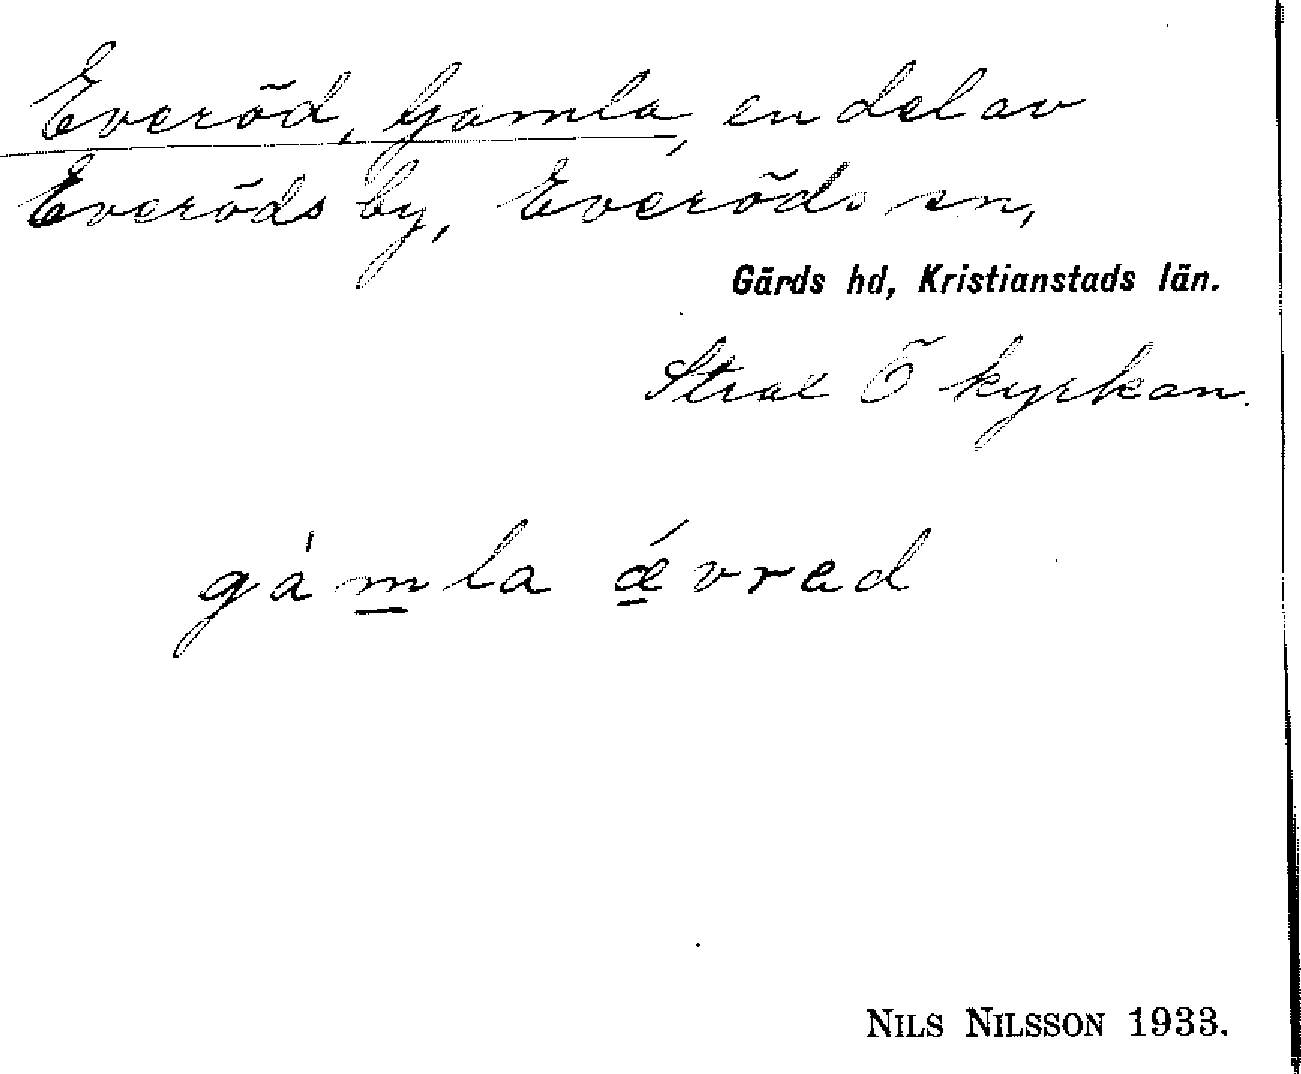 Everöd, Gamla, en del av
Everöds by, Everöds sn,
Gärds hd, Kristianstads län.
Strax Ö kyrkan.
gámla ǽvred
NILS NILSSON 1933.